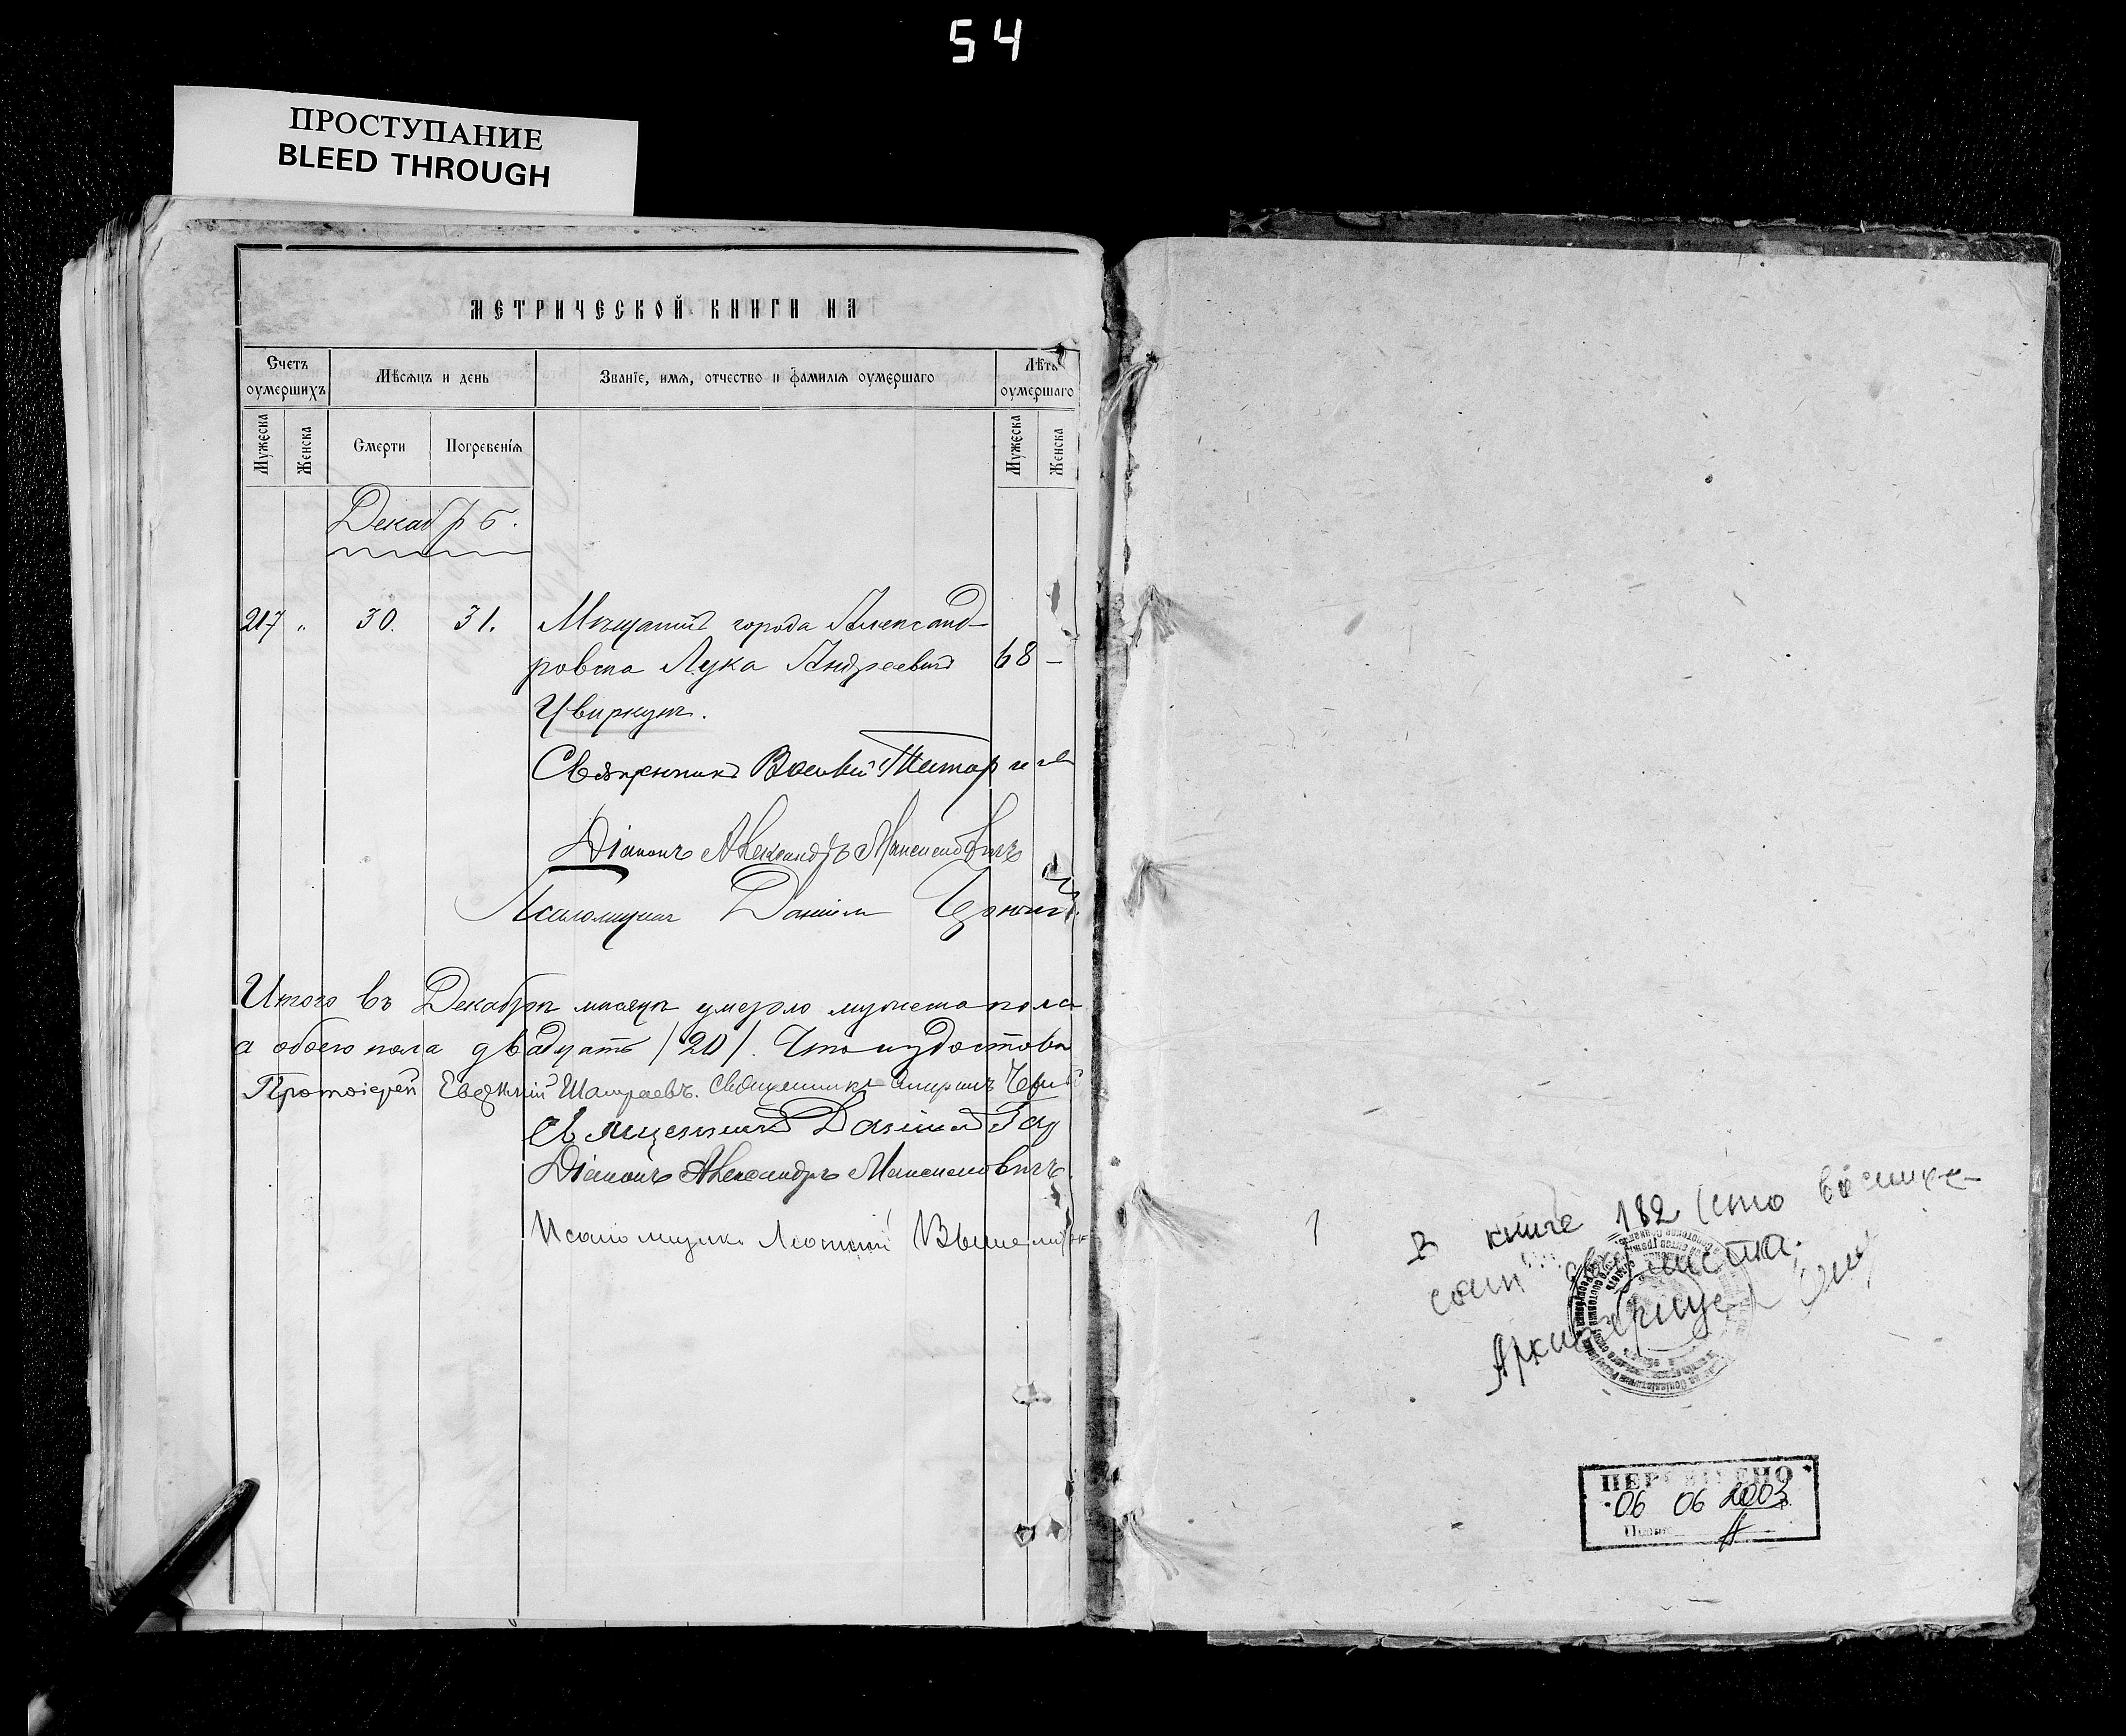 54
ПРОСТУПАНИЕ
BLEED THROUGH
МЕТРИЧЕСКОЙ КНИГИ НА
Счетъ оумершихъ
Мѣсяцъ и день
Званіе, имя, отчество и фамилія оумершаго
Лѣтъ оумершаго
Мужеска
Женска
Смерти
Погребенія
Мужеска
Женска
Декабрь.
217 " 30. 31. Мѣщанинъ города Александ-
ровска Лука Андреевичъ 68 –
Цвиркунъ.
Священникъ
Діаконъ Александръ Максимовичъ
Псаломщикъ Даніилъ
Итого въ Декабрѣ мѣсяцѣ умерло мужеска пола
а обоего пола двадцать /20/. Что и удостовѣ
Протоіерей Евгеній Священникъ
Священникъ Даніилъ
Діаконъ Александръ Максимовичъ
Псаломщикъ
1
В книге 182 (сто восемьде-
сят два) листа.
ПЕРЕВІРЕНО
06 06 2003